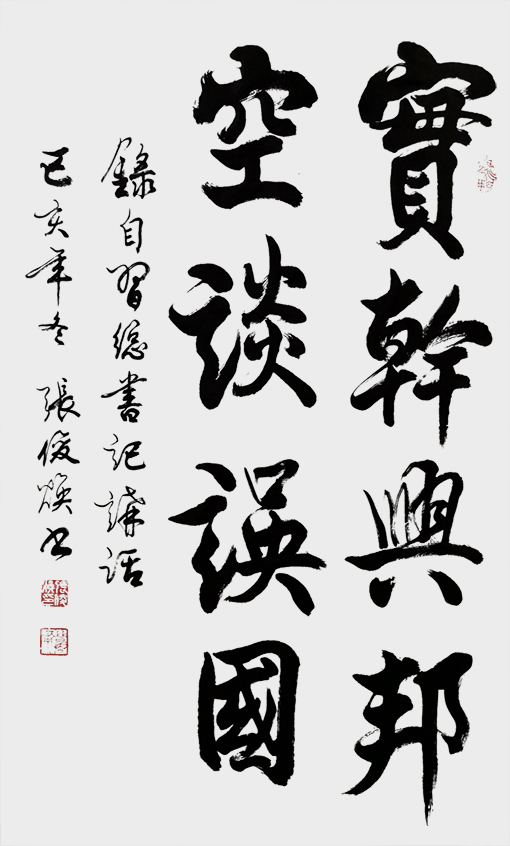 實幹興邦
空談誤國
錄自習總書記講話
己亥年冬 張俊煥書